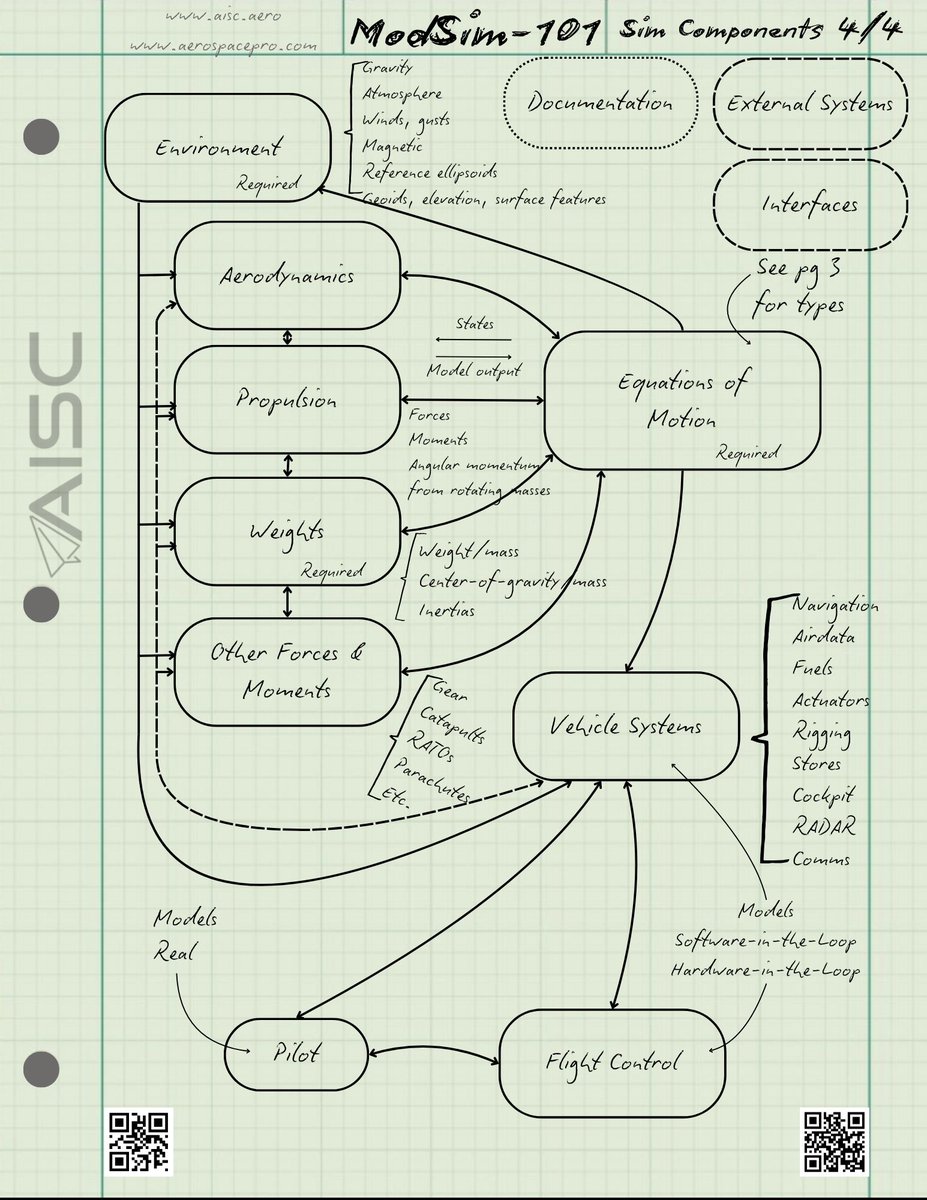 www.aisc.aero
www.aerospacepro.com
ModSim-101 Sim Components 4/4
Environment
Required
Gravity
Atmosphere
Winds, gusts
Magnetic
Reference ellipsoids
Geoids, elevation, surface features
Documentation
External Systems
Interfaces
See pg 3
for types
Aerodynamics
States
Model output
Propulsion
Forces
Moments
Angular momentum
from rotating masses
Equations of
Motion
Required
AISC
Weights
Required
Weight/mass
Center-of-gravity/mass
Inertias
Other Forces &
Moments
Gear
Catapults
RATOs
Parachutes
Etc.
Vehicle Systems
Navigation
Airdata
Fuels
Actuators
Rigging
Stores
Cockpit
RADAR
Comms
Models
Real
Models
Software-in-the-Loop
Hardware-in-the-Loop
Pilot
Flight Control